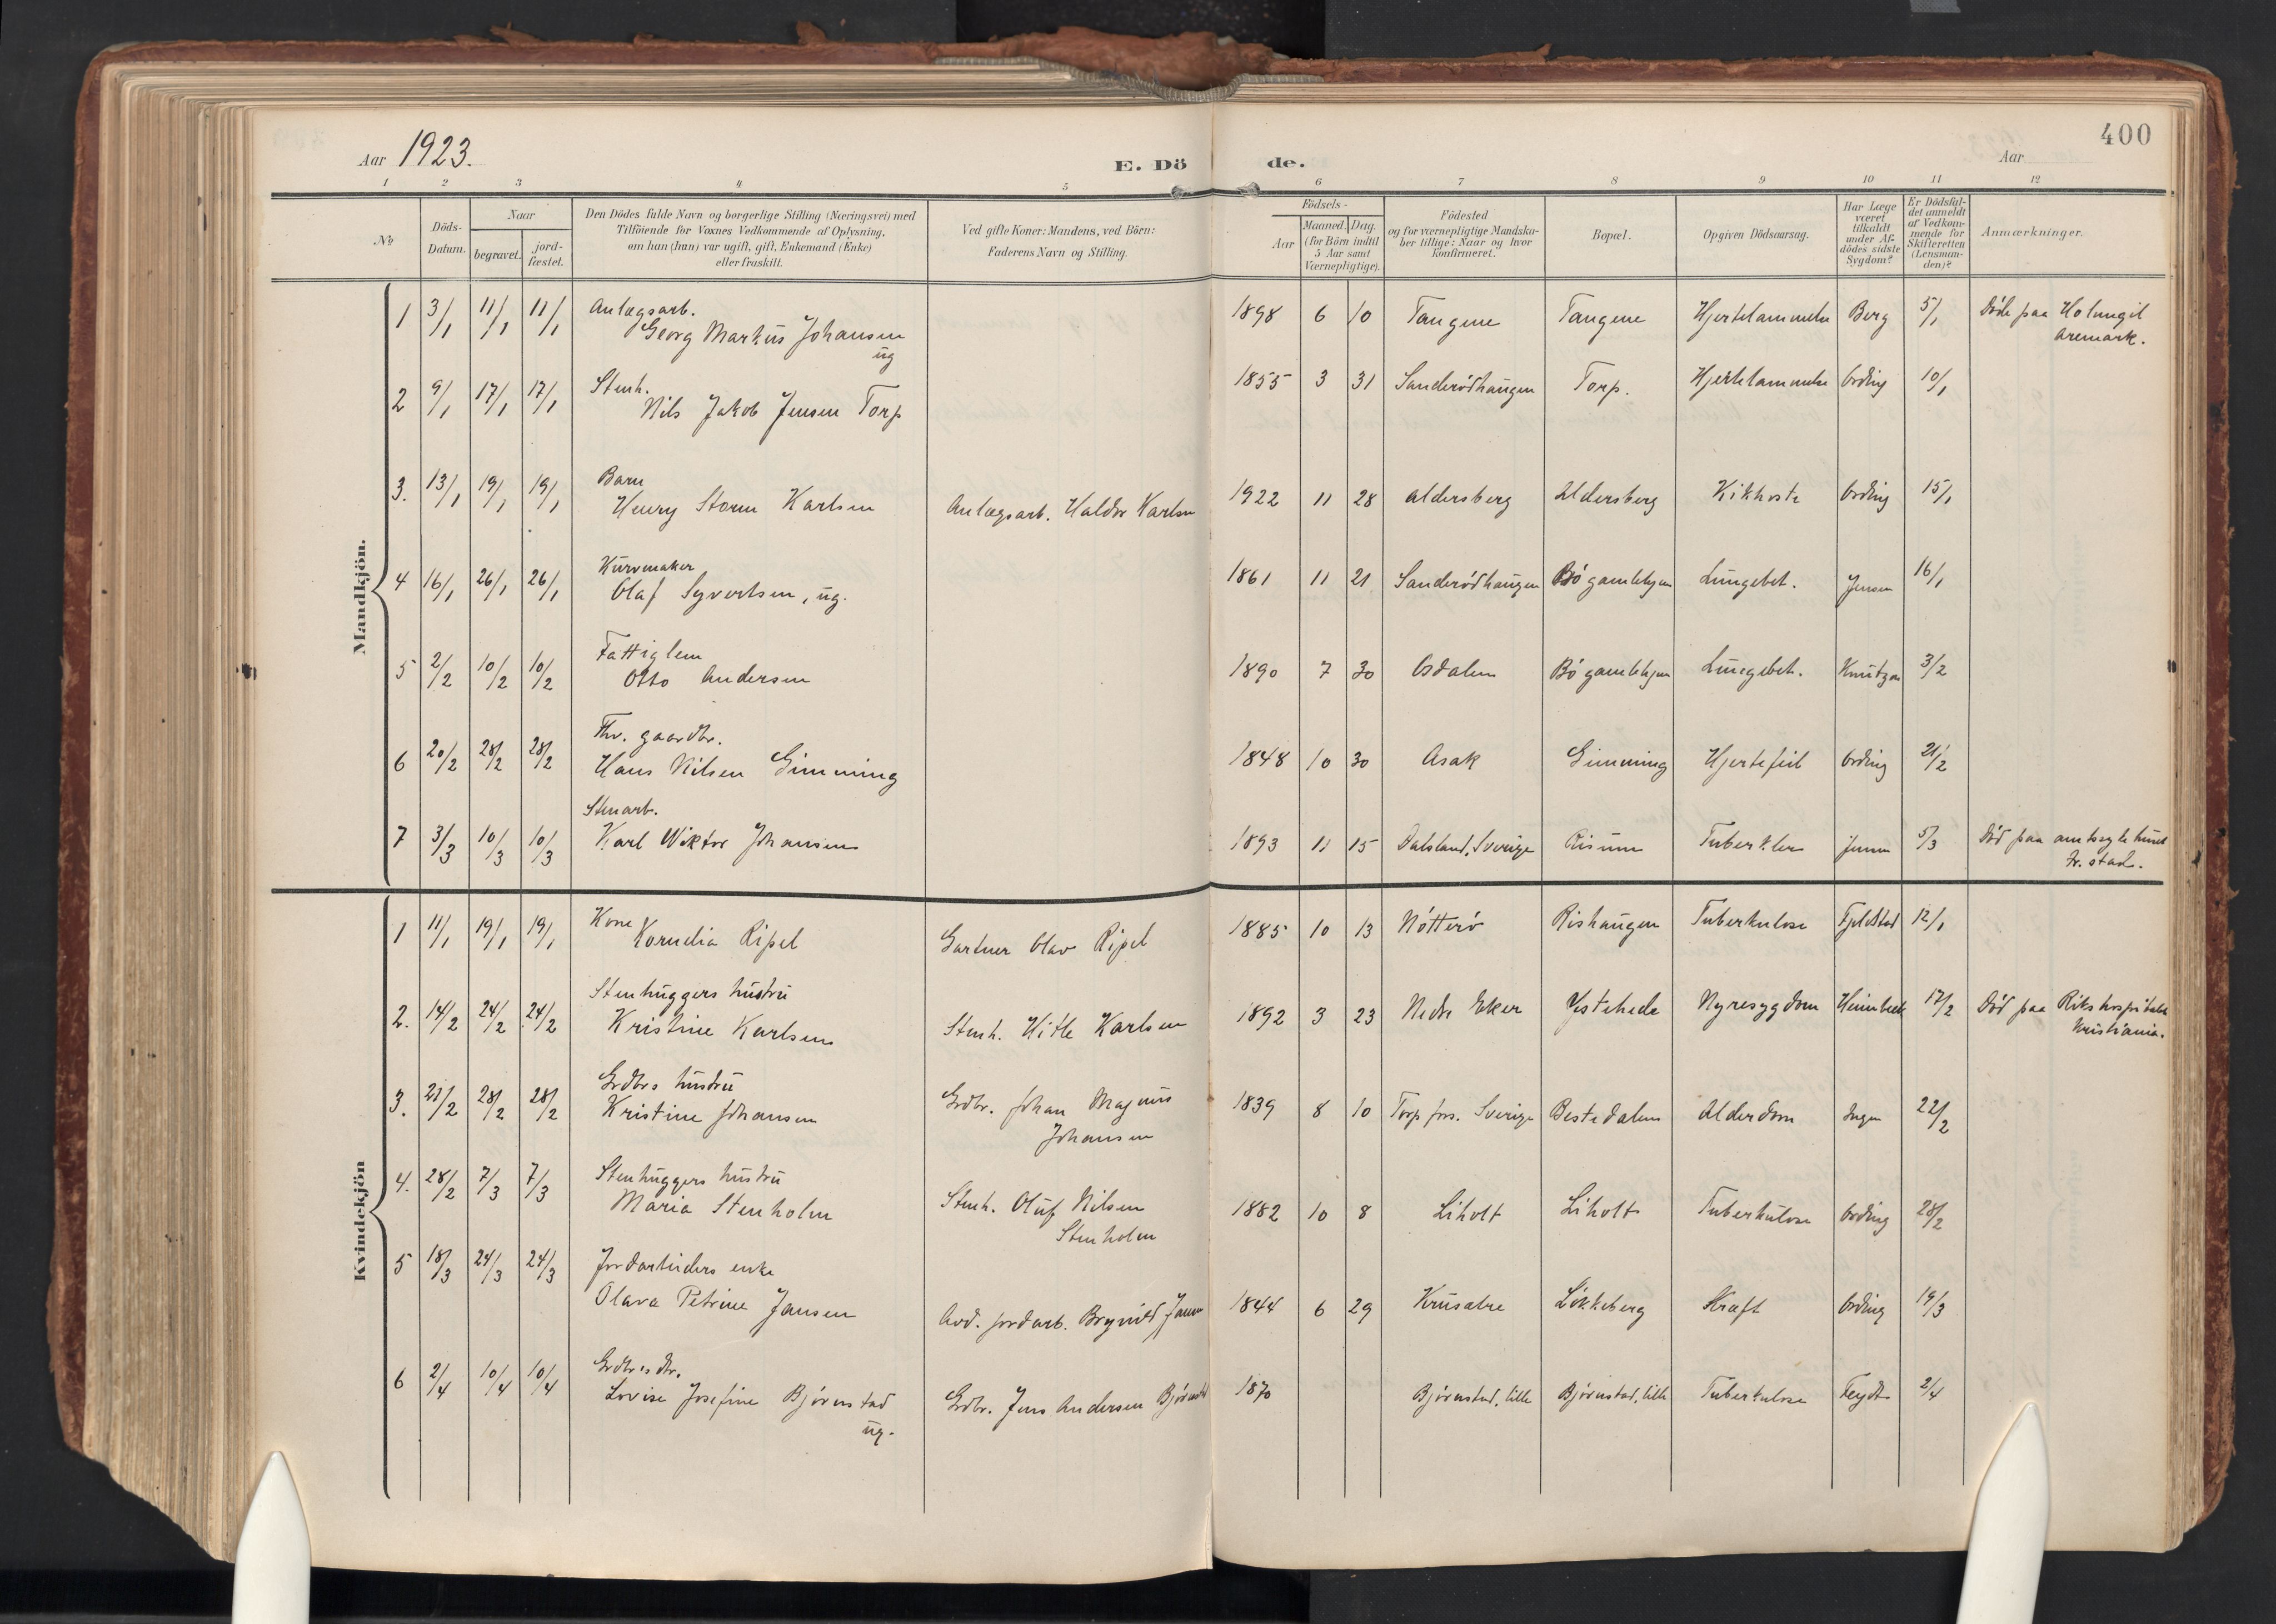 400
Aar 1923.
E. Dö de.
Aar
1 2 3 4 5 6 7 8 9 10 11 12
No
Döds-Datum.
Naar
begravet.
jord-fæstet.
Den Dödes fulde Navn og borgerlige Stilling (Næringsvei) med
Tilföiende for Voxnes Vedkommende af Oplysning,
om han (hun) var ugift, gift, Enkemand (Enke)
eller fraskilt.
Ved gifte Koner: Mandens, ved Börn:
Faderens Navn og Stilling.
Födsels-
Aar
Maaned. Dag.
(for Börn indtil
5 Aar samt
Værnepligtige).
Födested
og for værnepligtige Mandska-
ber tillige: Naar og hvor
konfirmeret.
Bopæl.
Opgiven Dödsaarsag.
Har Læge
været
tilkaldt
under Af-
dödes sidste
Sygdom?
Er Dödsfal-
det anmeldt
af Vedkom-
mende for
Skifteretten
(Lensman-
den)?
Anmærkninger.
Mandkjön.
1 3/1 11/1 11/1 Anlægsarb.
Georg Markus Johansen
ug
1898 6 10 Tangene Tangene Hjertelammelse Berg 5/1 Döde paa Holmegil
Aremark.
2 9/1 17/1 17/1 Stenh.
Nils Jakob Jensen Torp
1855 3 31 Sanderödhaugen Torp. Hjertelammelse Ording 10/1
3. 13/1 19/1 19/1 Barn
Henry Storm Karlsen Anlægsarb. Haldor Karlsen
1922 11 28 Aldersberg Aldersberg Kikhoste Ording 15/1
4 16/1 26/1 26/1 Kurvmaker
Olaf Syvertsen, ug.
1861 11 21 Sanderödhaugen Bö gamlehjem Lungebet. Jensen 16/1
5 2/2 10/2 10/2 Fattiglem
Otto Andersen
1890 7 30 Asdalen Bö gamlehjem Lungebet. Knutzen 3/2
6 20/2 28/2 28/2 Fhv. gaardbr.
Hans Nilsen Gimming
1848 10 30 Asak Gimming Hjertefeil Ording 21/2
7 3/3 10/3 10/3 Stenarb.
Karl Wiktor Johansen
1893 11 15 Dalsland, Sverige Risum Tuberkler Jensen 5/3 Död paa amtssykehuset
Fr.stad.
Kvindekjön
1 11/1 19/1 19/1 Kone
Kornelia Ripel Gartner Olav Ripel
1885 10 13 Nötterö Rishaugen Tuberkulose Fjeldstad 12/1
2. 14/2 24/2 24/2 Stenhuggers hustru
Kristine Karlsen Stenh. Hitle Karlsen
1892 3 23 Nedre Eker Ystehede Nyresygdom Heimbeck 17/2 Död paa Rikshospitalet
Kristiania.
3. 21/2 28/2 28/2 Grdbrs hustru
Kristine Johansen Grdbr. Johan Magnus
Johansen
1839 8 10 Torp frs. Sverige Bestedalen Alderdom Ingen 22/2
4. 28/2 7/3 7/3 Stenhuggers hustru
Maria Stenholm Stenh. Oluf Nilsen
Stenholm
1882 10 8 Liholt Liholt Tuberkulose Ording 28/2
5 18/3 24/3 24/3 Jordarbeiders enke
Olava Petrine Jansen Avd. jordarb. Brynild Jansen
1844 6 29 Krusætre Lökkeberg Kræft Ording 19/3
6 2/4 10/4 10/4 Grdbrs dtr.
Lovise Josefine Björnstad
ug.
Grdbr. Jens Andersen Björnstad
1870 Björnstad, lille Björnstad, lille Tuberkulose Feydt 2/4